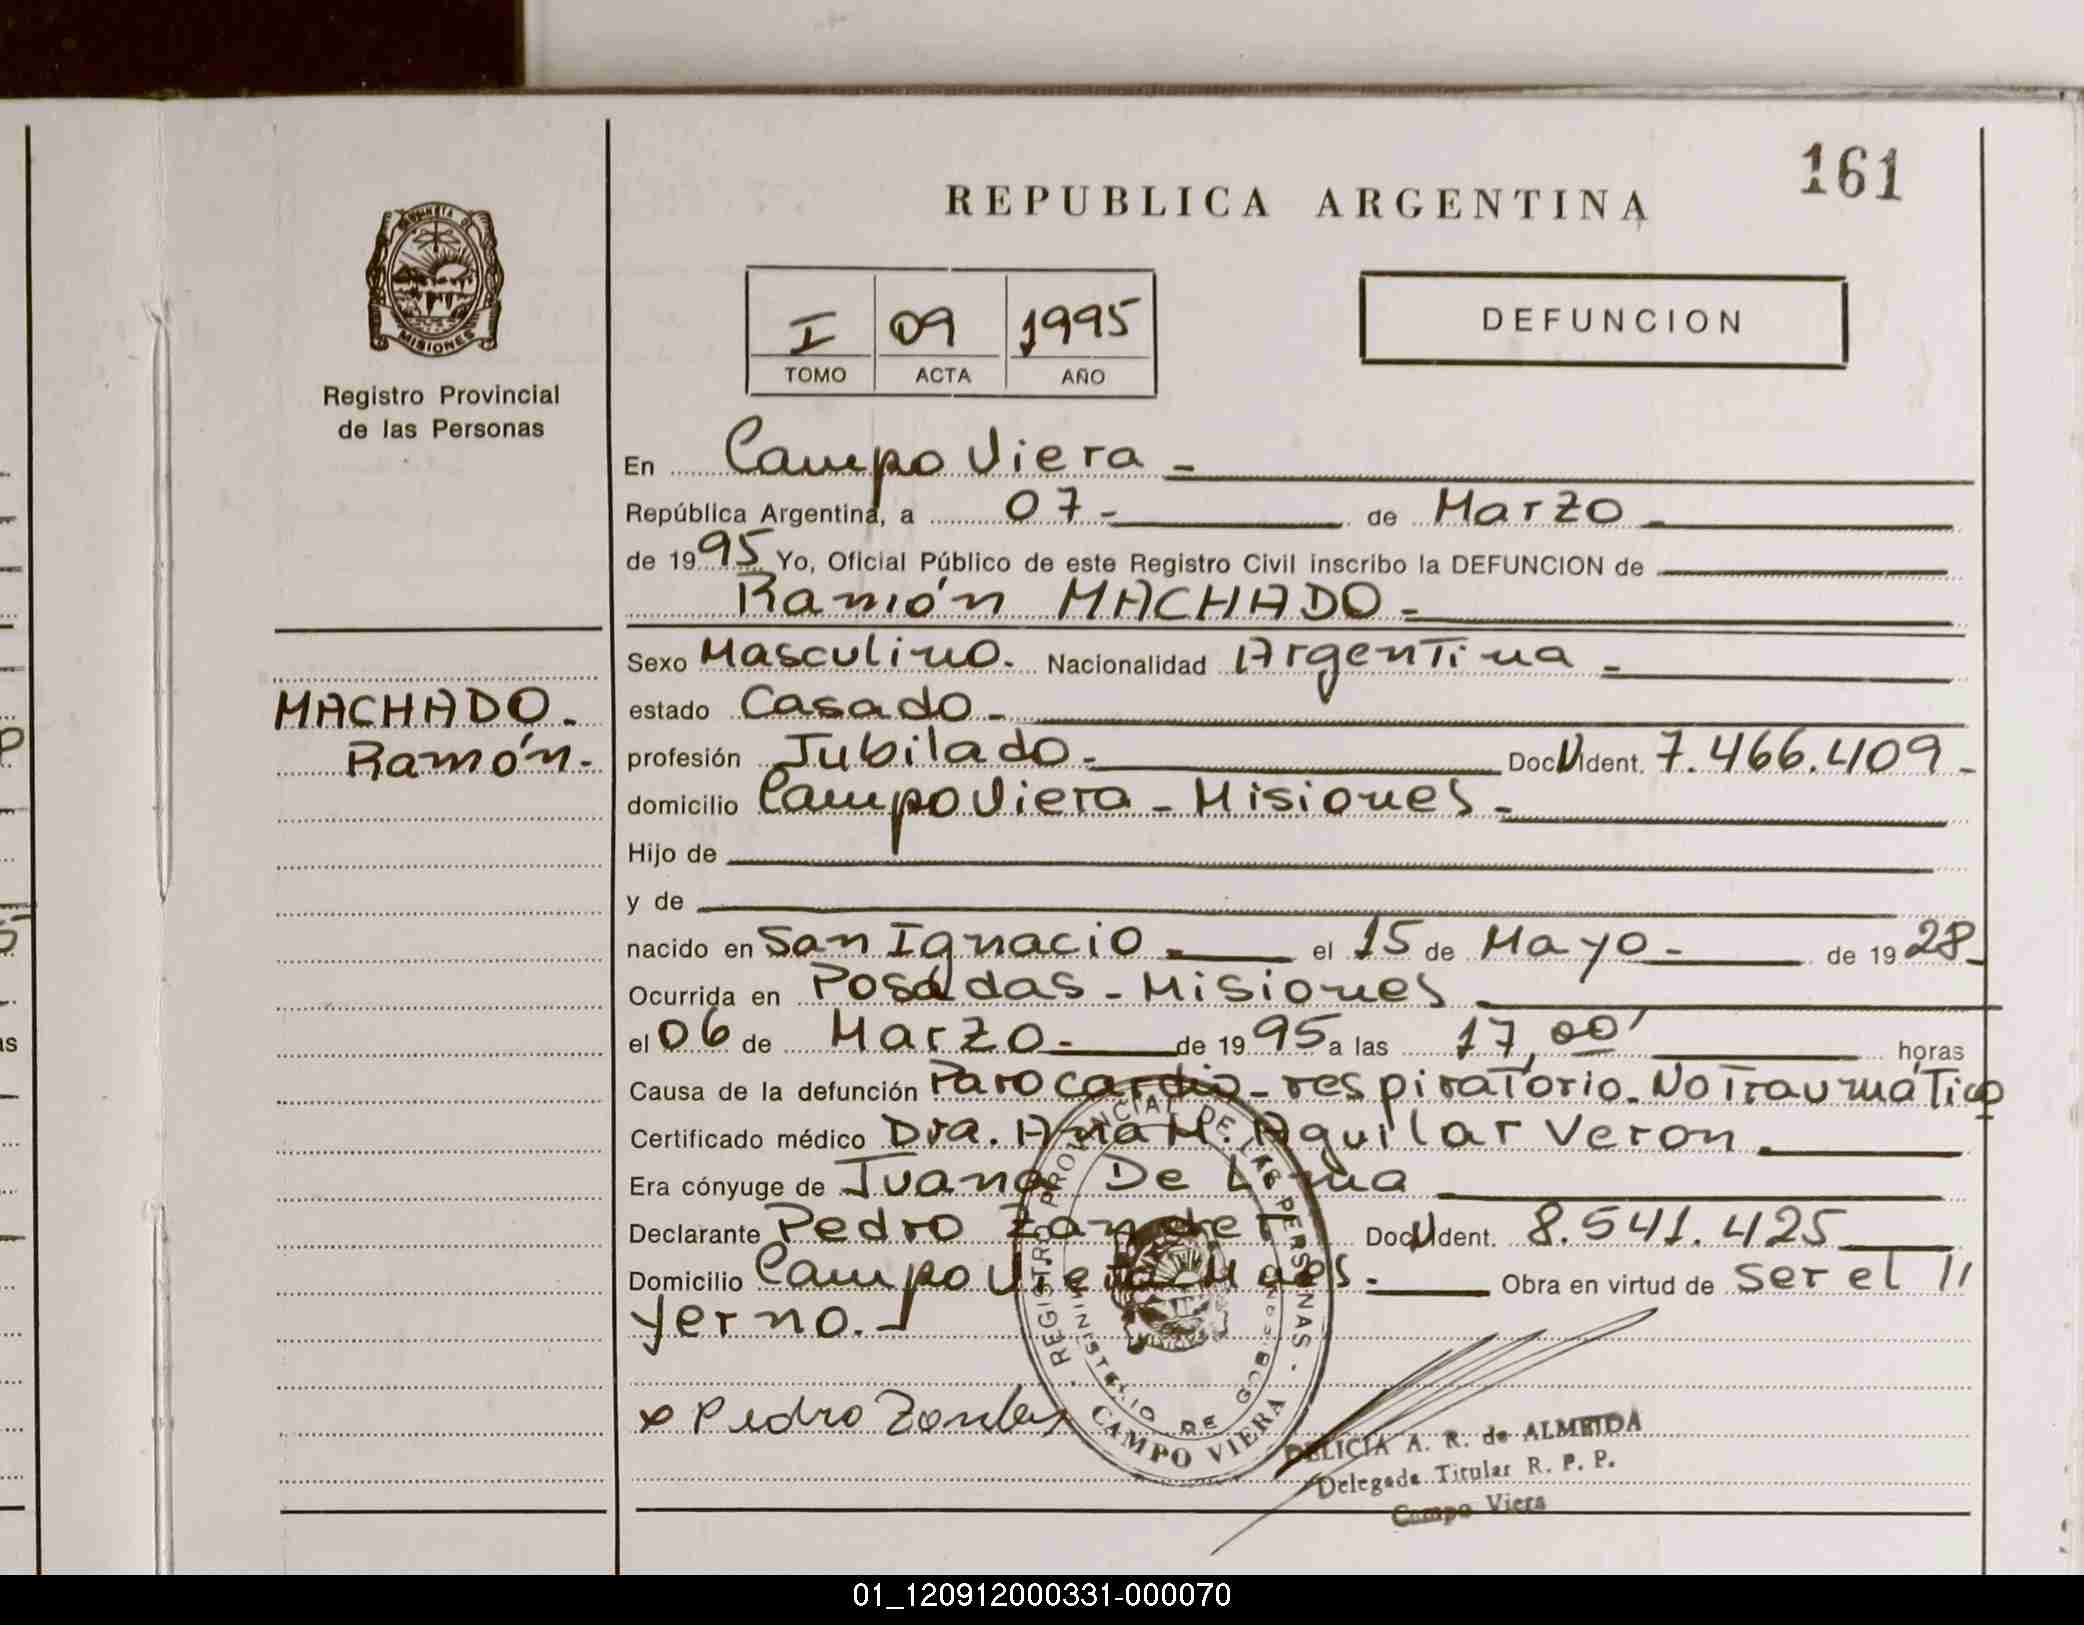 161
REPUBLICA ARGENTINA
MISIONES
Registro Provincial
de las Personas
I 09 1995
TOMO ACTA AÑO
DEFUNCION
En Campo Viera -
República Argentina, a 07- de Marzo -
de 1995 Yo, Oficial Público de este Registro Civil inscribo la DEFUNCION de
Ramón MACHADO -
Sexo Masculino. Nacionalidad Argentina -
MACHADO.
Ramón.-
estado Casado -
profesión Jubilado - Doc. Ident. 7.466.409 -
domicilio Campo Viera - Misiones -
Hijo de
y de
nacido en San Ignacio - el 15 de Mayo - de 1928 -
Ocurrida en Posadas - Misiones
el 06 de Marzo - de 1995 a las 17,00' horas
Causa de la defunción Paro cardio-respiratorio. No Traumático
Certificado médico Dra. Ana M. Aguilar Veron
Era cónyuge de Juana De Lima
Declarante Pedro Zander Doc. Ident. 8.541.425
Domicilio Campo Viera - Mnes. - Obra en virtud de ser el //
yerno.-
x Pedro Zander
REGISTRO PROVINCIAL DE LAS PERSONAS -
MINISTERIO DE GOBIERNO
CAMPO VIERA
DELICIA A. R. de ALMEIDA
Delegada Titular R. P. P.
Campo Viera
01_120912000331-000070